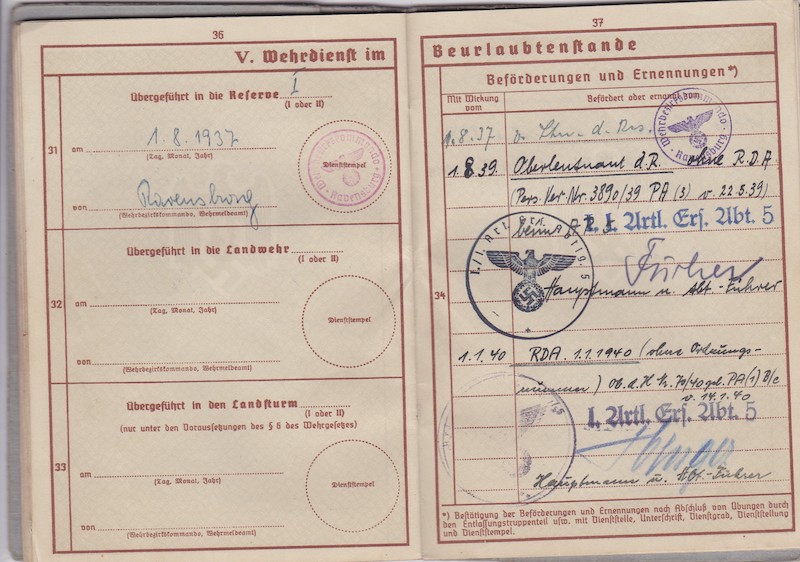 36
V. Wehrdienst im
31
Übergeführt in die Reserve I
(I oder II)
am 1.8.1937
(Tag, Monat, Jahr)
Ravensburg
von
(Wehrbezirkskommando, Wehrmeldeamt)
Dienststempel
32
Übergeführt in die Landwehr
(I oder II)
am
(Tag, Monat, Jahr)
von
(Wehrbezirkskommando, Wehrmeldeamt)
Dienststempel
33
Übergeführt in den Landsturm
(I oder II)
(nur unter den Voraussetzungen des § 6 des Wehrgesetzes)
am
(Tag, Monat, Jahr)
von
(Wehrbezirkskommando, Wehrmeldeamt)
Dienststempel
37
Beurlaubtenstande
34
Beförderungen und Ernennungen*)
Mit Wirkung vom
Befördert oder ernannt zum
1.8.37 Ltn. d. Res.
Wehrbezirkskommando Ravensburg
1.8.39. Oberleutnant d.R. ohne R.D.A
(Pers. Ver. Nr. 3890/39 PA (3) v. 22.5.39)
I. Artl. Ers. Abt. 5
Hauptmann u. Abt-Führer
1.1.40 RDA. 1.1.1940 (ohne Ordnungs-
nummer) Ob. d. H Nr. 70/40 PA (1)
v. 14.1.40
I. Artl. Ers. Abt. 5
Hauptmann u. Abt-Führer
*) Bestätigung der Beförderungen und Ernennungen nach Abschluß von Übungen durch
den Entlassungstruppenteil usw. mit Dienststelle, Unterschrift, Dienstgrad, Dienststellung
und Dienststempel.